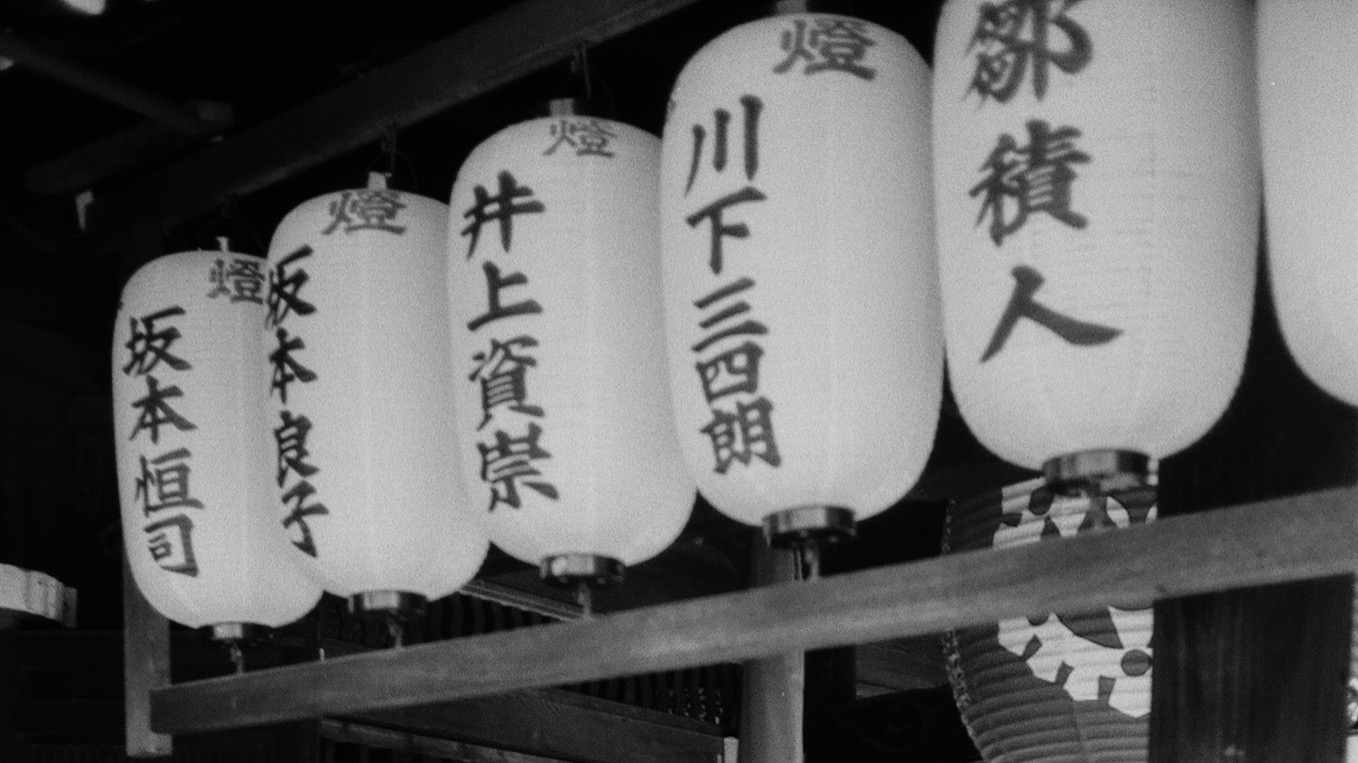 鄒積人
燈
川下三四朗
燈
井上資崇
燈
坂本良子
燈
坂本恒司